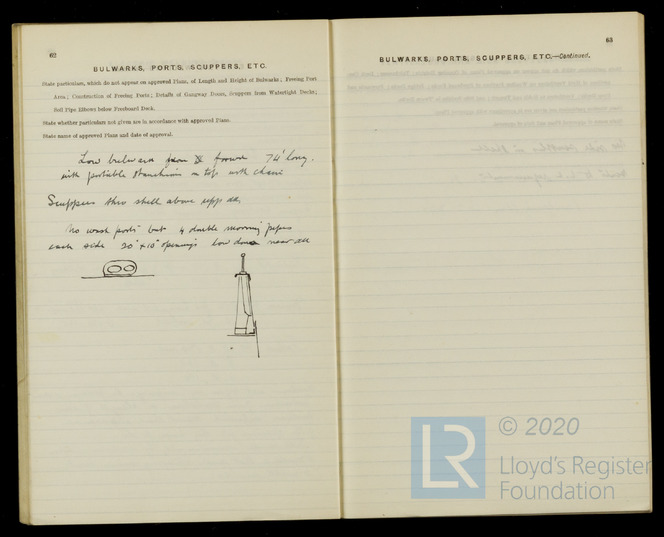 62
BULWARKS, PORTS, SCUPPERS, ETC.
State particulars, which do not appear on approved Plans, of Length and Height of Bulwarks; Freeing Port
Area; Construction of Freeing Ports; Details of Gangway Doors, Scuppers from Watertight Decks;
Soil Pipe Elbows below Freeboard Deck.
State whether particulars not given are in accordance with approved Plans.
State name of approved Plans and date of approval.
Low bulwark from forward 74' long.
with portable stanchions on top with chain
Scuppers thro shell above upp dk
No wash ports but 4 double mooring pipes
each side 20" x 10" openings low down near
63
BULWARKS, PORTS, SCUPPERS, ETC.—Continued.
LR
© 2020
Lloyd's Register
Foundation